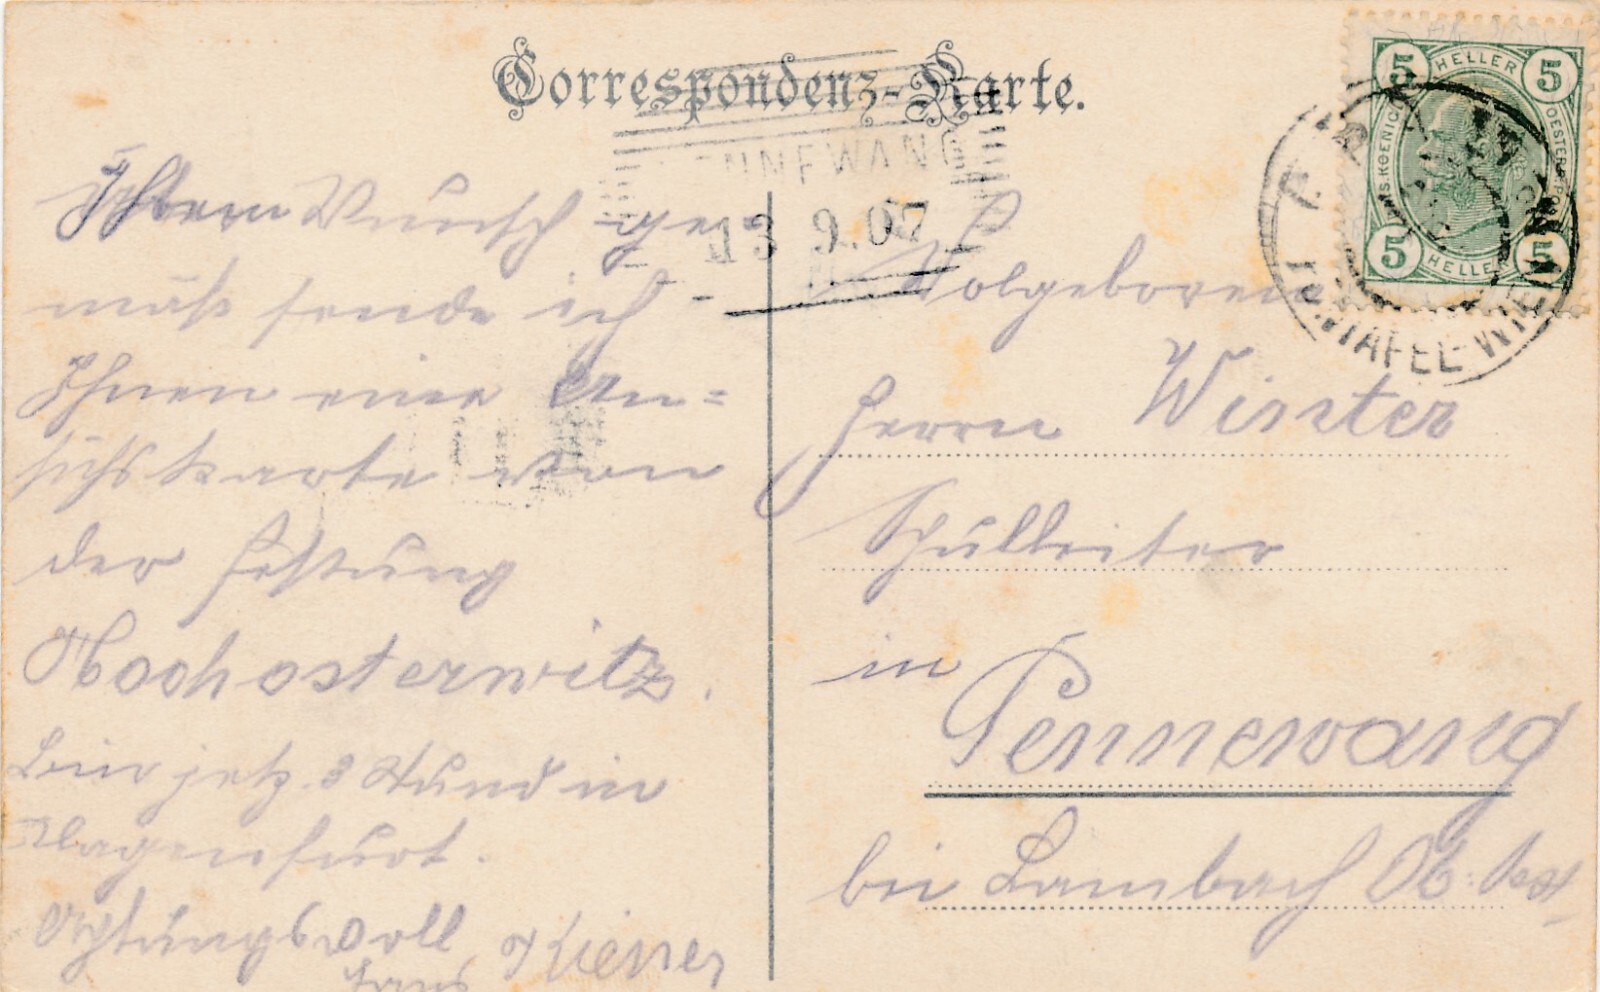 Correspondenz-Karte.
5 HELLER 5
5 HELLER 5
PENNEWANG
13 9.07
TAFEL-WIEN
Ihrem Wunsch ge-
mäß sende ich
Ihnen eine An=
sichskarte von
der Festung
Hochosterwitz.
Bin jetz 3 Stund in
Klagenfurt.
Achtungsvoll
Hans Kiener
Wolgeboren
Herrn Winter
Schulleiter
in
Pennewang
bei Lambach Ob. Öst